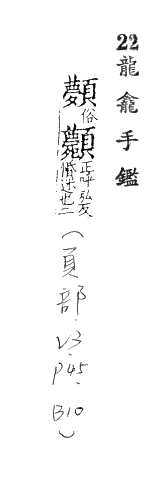 22龍龕手鑑
顭俗正呼弘反惛迷也二（頁部.V3.P45.B10）